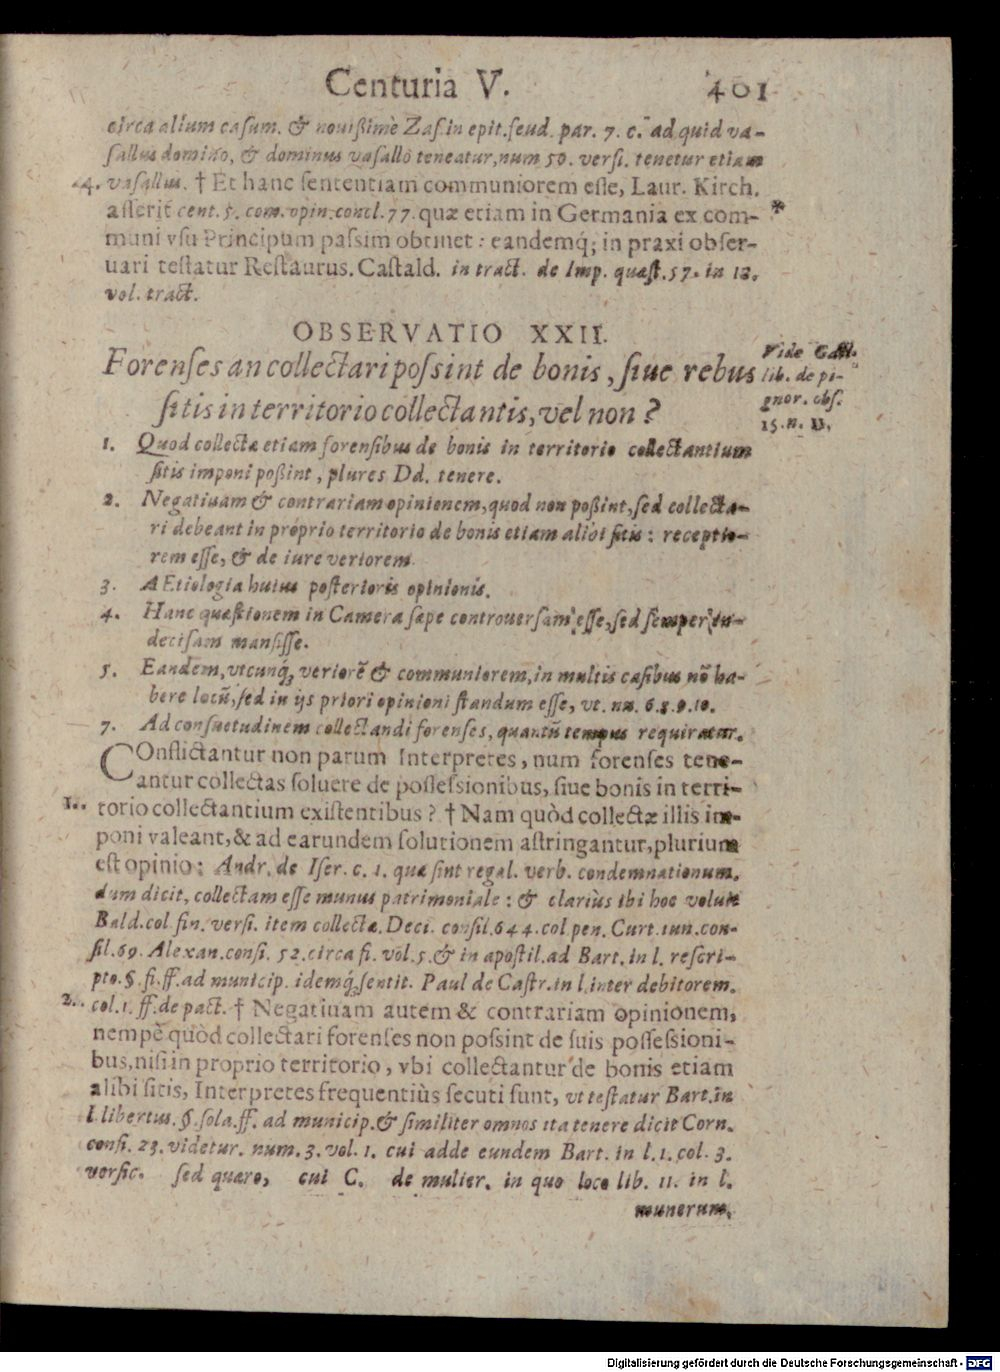 Centuria V. 401
circa alium casum. & nouißimè Zas. in epit. feud. par. 7. c. ad quid va-
sallus domino, & dominus vasallo teneatur, num 50. versi. tenetur etiam
24. vasallus. † Et hanc sententiam communiorem esse, Laur. Kirch.
asserit cent. 5. com. opin. concl. 77. quæ etiam in Germania ex com- *
muni vsu Principum passim obtinet: eandemq́; in praxi obser-
uari testatur Restaurus. Castald. in tract. de Imp. quæst. 57. in 12.
vol. tract.
OBSERVATIO XXII.
Forenses an collectari possint de bonis, siue rebus
sitis in territorio collectantis, vel non?
Vide Gail.
lib. de pi-
gnor. obs.
15. n. 11.
1. Quod collectæ etiam forensibus de bonis in territorio collectantium
sitis imponi poßint, plures Dd. tenere.
2. Negatiuam & contrariam opinionem, quod non poßint, sed collecta-
ri debeant in proprio territorio de bonis etiam alibi sitis: receptio-
rem esse, & de iure veriorem.
3. AEtiologia huius posterioris opinionis.
4. Hanc quæstionem in Camera sæpe controuersam esse, sed semper in-
decisam mansisse.
5. Eandem, vtcunq́; veriorē & communiorem, in multis casibus nō ha-
bere locū, sed in ijs priori opinioni standum esse, vt. nu. 6.8.9.10.
7. Ad consuetudinem collectandi forenses, quantū tempus requiratur.
COnflictantur non parum Interpretes, num forenses tene-
antur collectas soluere de possessionibus, siue bonis in terri-
1. torio collectantium existentibus? † Nam quòd collectæ illis im-
poni valeant, & ad earundem solutionem astringantur, plurium
est opinio: Andr. de Iser. c. 1. quæ sint regal. verb. condemnationum,
dum dicit, collectam esse munus patrimoniale: & clariùs ibi hoc voluit
Bald. col. fin. versi. item collectæ. Deci. consil. 644. col. pen. Curt. iun. con-
sil. 69. Alexan. consi. 52. circa fi. vol. 5. & in apostil. ad Bart. in l. rescri-
pto. §. fi. ff. ad municip. idemq́; sentit. Paul de Castr. in l. inter debitorem.
2. col. 1. ff. de pact. † Negatiuam autem & contrariam opinionem,
nempè quòd collectari forenses non possint de suis possessioni-
bus, nisi in proprio territorio, vbi collectantur de bonis etiam
alibi sitis, Interpretes frequentiùs secuti sunt, vt testatur Bart. in
l. libertus. §. sola. ff. ad municip. & similiter omnes ita tenere dicit Corn.
consi. 23. videtur. num. 3. vol. 1. cui adde eundem Bart. in l. 1. col. 3.
versic. sed quæro, cui C. de mulier. in quo loco lib. 11. in l.
munerum,
Digitalisierung gefördert durch die Deutsche Forschungsgemeinschaft - DFG